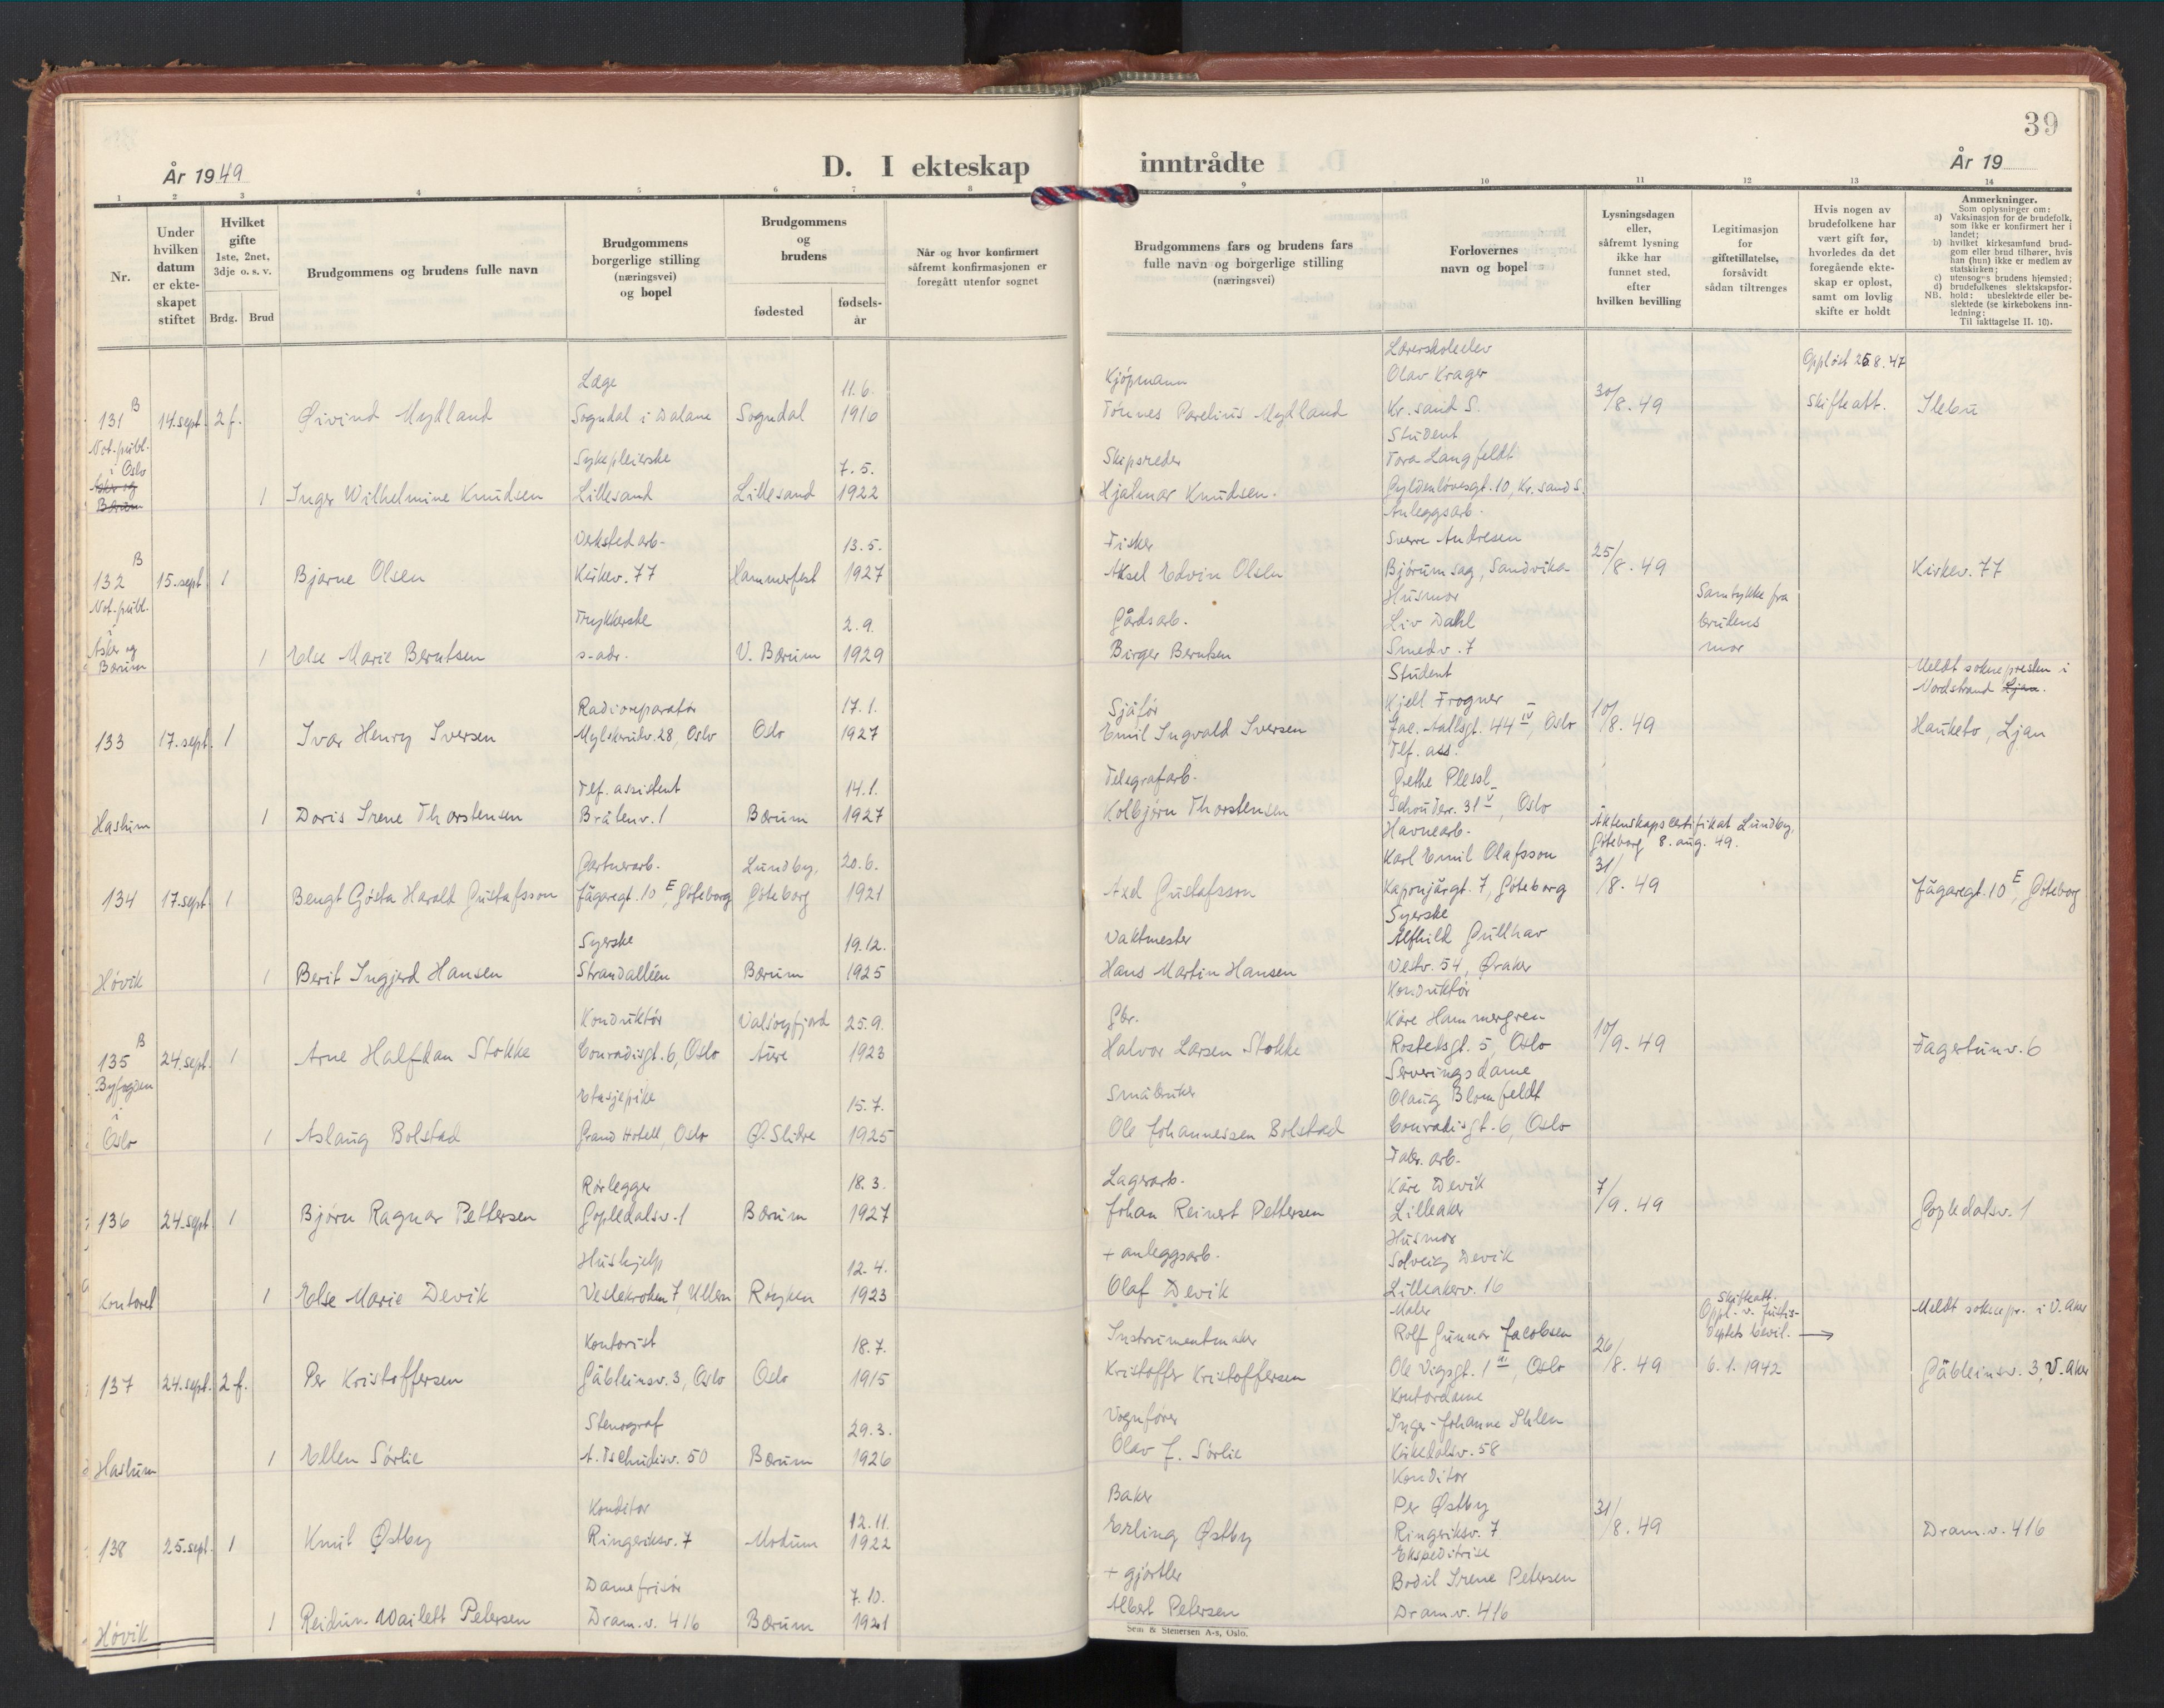 39
År 1949
D. I ekteskap inntrådte
År 19
1 2 3 4 5 6 7 8 9 10 11 12 13 14
Nr.
Under hvilken datum er ekte-skapet stiftet
Hvilket gifte 1ste, 2net, 3dje o. s. v.
Brdg. Brud
Brudgommens og brudens fulle navn
Brudgommens borgerlige stilling (næringsvei) og bopel
Brudgommens og brudens
fødested
fødsels-år
Når og hvor konfirmert såfremt konfirmasjonen er foregått utenfor sognet
Brudgommens fars og brudens fars fulle navn og borgerlige stilling (næringsvei)
Forlovernes navn og bopel
Lysningsdagen eller, såfremt lysning ikke har funnet sted, efter hvilken bevilling
Legitimasjon for giftetillatelse, forsåvidt sådan tiltrenges
Hvis nogen av brudefolkene har vært gift før, hvorledes da det foregående ekte-skap er opløst, samt om lovlig skifte er holdt
Anmerkninger.
Som oplysninger om:
a) Vaksinasjon for de brudefolk, som ikke er konfirmert her i landet;
b) hvilket kirkesamfund brud-gom eller brud tilhører, hvis han (hun) ikke er medlem av statskirken;
c) utensogns brudens hjemsted;
d) brudefolkenes slektskapsfor-hold: ubeslektede eller be-slektede (se kirkebokens inn-ledning:
NB. Til iakttagelse II. 10).
Lærerskoleelev
Oppløst 25.8.47
Læge 11.6. Kjøpmann Olav Krager
131 B 14.sept. 2 f. Øivind Mydland Sogndal i Dalane Sogndal 1916 Tønnes Parelius Mydland Kr. sand S. 30/8.49 Skifteatt. Ilebu
Not. publ. i Oslo Student
Sykepleierske 7.5. Skipsreder Tora Langfeldt
Asker og Bærum 1 Inger Wilhelmine Knudsen Lillesand Lillesand 1922 Hjalmar Knudsen. Gyldenløvesgt. 10, Kr. sand S.
Anleggsarb.
Verkstedarb. 13.5. Fisker Sverre Andresen
132 B 15.sept. 1 Bjarne Olsen Kirkev. 77 Hammerfest 1927 Aksel Edvin Olsen Bjørum sag, Sandvika 25/8.49 Kirkev. 77
Not. publ. i Husmor Samtykke fra
Trykkerske 2.9. Gårdsarb. Liv Dahl brudens
Asker og Bærum 1 Else Marie Berntsen s. adr. V. Bærum 1929 Birger Berntsen Smedv. 7 mor
Student Meldt soknepresten i
Nordstrand Ljan.
Radioreparatør 17.1. Sjåfør Kjell Frogner
133 17.sept. 1 Ivar Henry Iversen Mylskrudv. 28, Oslo Oslo 1927 Emil Ingvald Iversen Jac. Aallsgt. 44 IV, Oslo 10/8.49 Hauketo, Ljan
Tlf. ass.
Tlf. assistent 14.1. Telegrafarb. Grethe Plessl
Haslum 1 Doris Irene Thorstensen Bråtenv. 1 Bærum 1927 Kolbjørn Thorstensen Schouter. 31 V, Oslo
Havnearb. Äktenskapscertifikat Lundby, Göteborg 8. aug. 49.
Gartnerarb. Lundby, 20.6. Karl Emil Olafsson
134 17.sept. 1 Bengt Gösta Harald Gustafsson Jägaregt. 10 E, Göteborg Göteborg 1921 Axel Gustafsson Kaponjärgt. 7, Göteborg 31/8.49 Jägaregt. 10 E, Göteborg
Syerske
Syerske 19.12. Vaktmester Alfhild Gullhav
Høvik 1 Berit Ingjerd Hansen Strandalléen Bærum 1925 Hans Martin Hansen Vestv. 54, Øraker
Konduktør
Konduktør Valsøyfjord 25.9. Gbr. Kåre Hammergren
135 B 24.sept. 1 Arne Halfdan Stokke Conradisgt. 6, Oslo Aure 1923 Halvor Larsen Stokke Rostedsgt. 5, Oslo 10/9.49 Fagertunv. 6
Byfogden i Serveringsdame
Etasjepike 15.7. Småbruker Olaug Blomfeldt
Oslo 1 Aslaug Bolstad Grand Hotell, Oslo Ø. Slidre 1925 Ole Johannessen Bolstad Conradisgt. 6, Oslo
Fabr. arb.
Rørlegger 18.3. Lagerarb. Kåre Devik
136 24.sept. 1 Bjørn Ragnar Pettersen Gopledalsv. 1 Bærum 1927 Johan Reinert Pettersen Lilleaker 7/9.49 Gopledalsv. 1
Husmor
Hushjelp 12.4. + anleggsarb. Solveig Devik
Kontoret 1 Else Marie Devik Veslekroken 7, Ullern Røyken 1923 Olaf Devik Lilleakerv. 16
Maler Skifteatt. Oppl. v. Justis- Meldt soknepr. i V. Aker
Kontorist 18.7. Instrumentmaker Rolf Gunnar Jacobsen deptets bevil. →
137 24.sept. 2 f. Per Kristoffersen Gåbleinsv. 3, Oslo Oslo 1915 Kristoffer Kristoffersen Ole Vigsgt. 1 III, Oslo 26/8.49 6.1.1942 Gåbleinsv. 3, V. Aker
Kontordame
Stenograf 29.3. Vognfører Inger-Johanne Ihlen
Haslum 1 Ellen Sørlie A. Tschudisv. 50 Bærum 1926 Olav J. Sørlie Kirkedalsv. 58
Konditor
Konditor 12.11. Baker Per Østby
138 25.sept. 1 Knut Østby Ringeriksv. 7 Modum 1922 Erling Østby Ringeriksv. 7 31/8.49 Dram.v. 416
Ekspeditrise
Damefrisør 7.10. + gjørtler Bodil Irene Petersen
Høvik 1 Reidun Wailett Petersen Dram.v. 416 Bærum 1921 Albert Petersen Dram.v. 416
Sem & Stenersen A-s, Oslo.